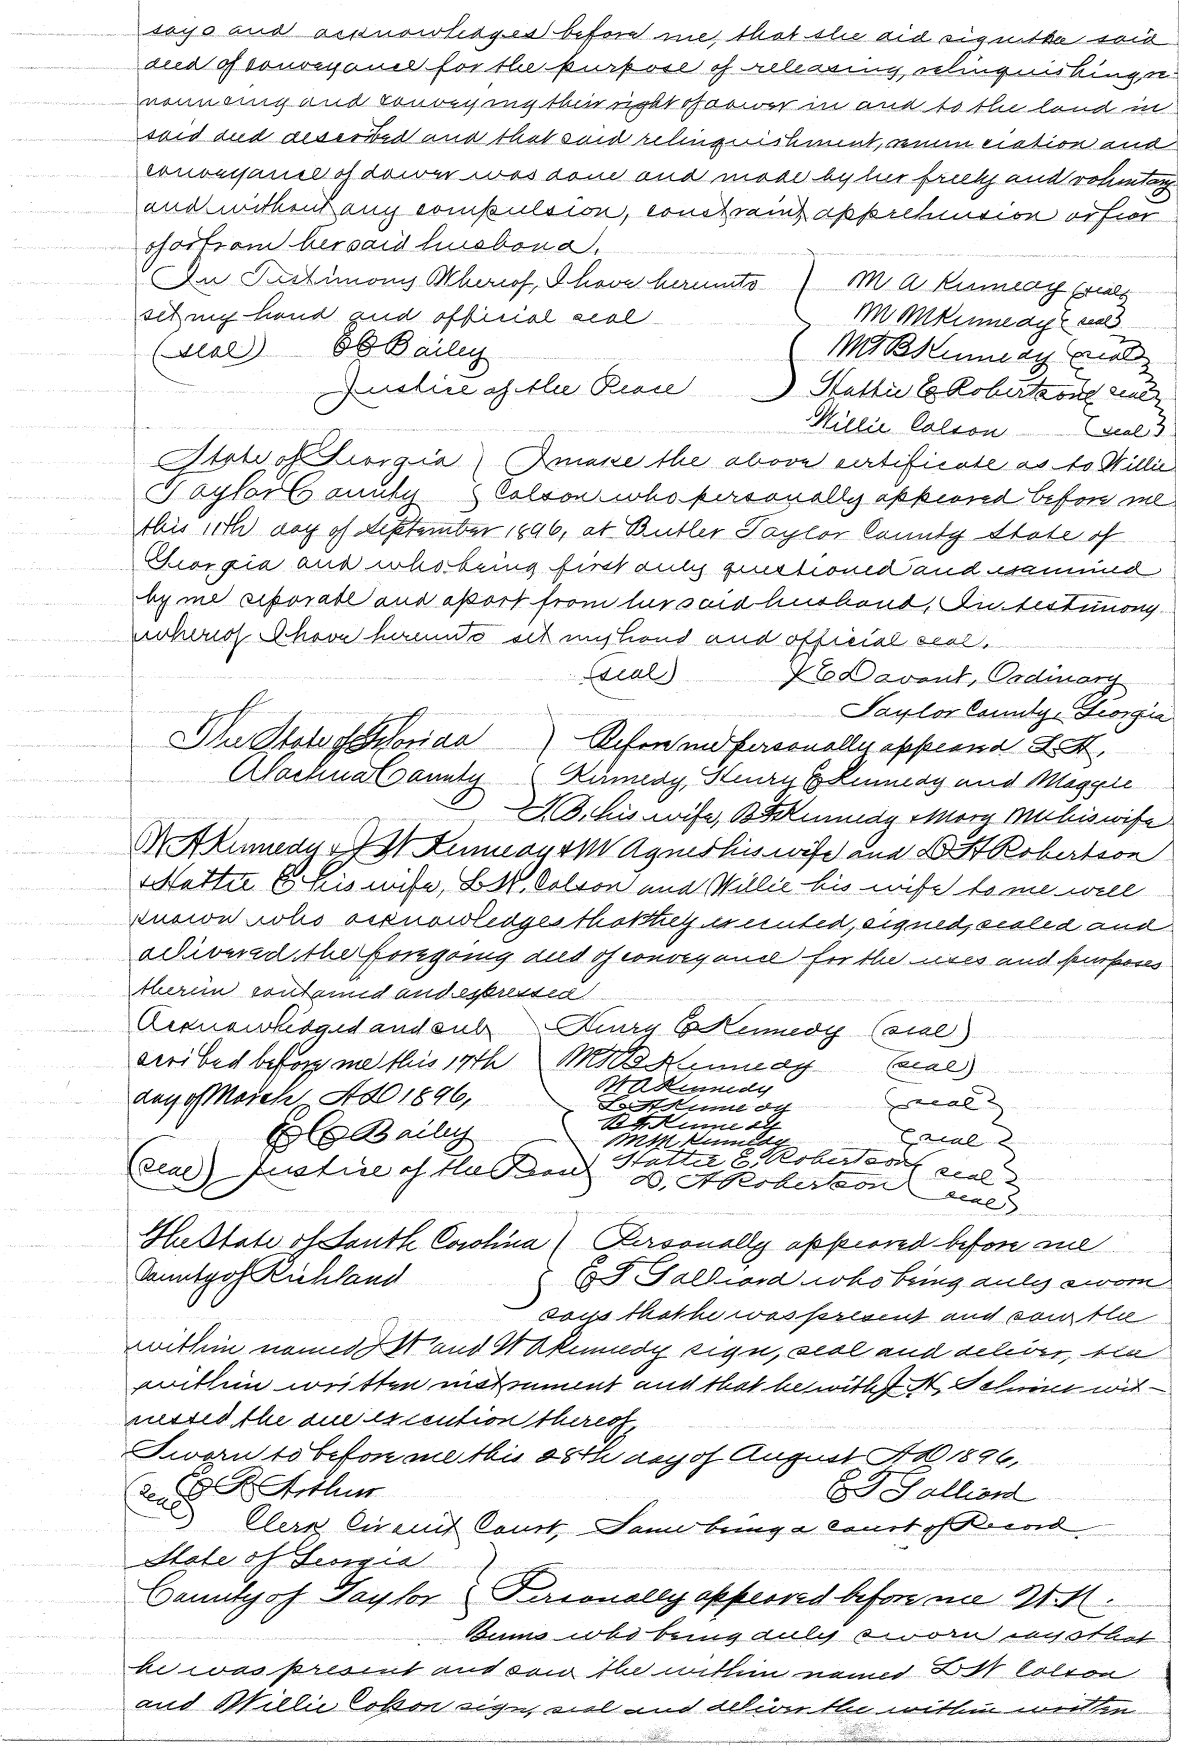 says and acknowledges before me, that she did sign the said
deed of conveyance for the purpose of releasing, relinquishing, re-
nouncing and conveying their right of dower in and to the land in
said deed described and that said relinquishment, renunciation and
conveyance of dower was done and made by her freely and voluntary
and without any compulsion, constraint, apprehension or fear
of or from her said husband.
In Testimony Whereof, I have hereunto ) M A Kennedy (seal)
set my hand and official seal M M Kennedy (seal)
(seal) E C Bailey M T B Kennedy (seal)
Justice of the Peace ) Hattie E Robertson (seal)
Willie Colson (seal)
State of Georgia ) I make the above certificate as to Willie
Taylor County } Colson who personally appeared before me
this 11th day of September 1896, at Butler Taylor County State of
Georgia and who being first duly questioned and examined
by me separate and apart from her said husband. In testimony
whereof I have hereunto set my hand and official seal.
(seal) Davant, Ordinary
Taylor County, Georgia
The State of Florida ) Before me personally appeared L. A.
Alachua County ( Kennedy, Henry E Kennedy and Maggie
T. B. his wife, B F Kennedy & Mary M his wife
W A Kennedy & J W Kennedy & M Agnes his wife and D A Robertson
& Hattie E his wife, L W. Colson and Willie his wife to me well
known who acknowledges that they executed, signed, sealed and
delivered the foregoing deed of conveyance for the uses and purposes
therein contained and expressed
Acknowledged and sub Henry E Kennedy (seal)
scribed before me this 17th M T B Kennedy (seal)
day of March AD 1896, W A Kennedy
L A Kennedy (seal)
E C Bailey B F Kennedy
M M Kennedy (seal)
(seal) Justice of the Peace Hattie E. Robertson (seal)
D. A Robertson (seal)
The State of South Carolina ( Personally appeared before me
County of Richland } E T Galliard who being duly sworn
says that he was present and saw the
within named J W and W A Kennedy sign, seal and deliver, the
within written instrument and that he with J. H. wit-
nessed the due execution thereof,
Sworn to before me this 28th day of August AD 1896,
(seal) E R Arthur E T Galliard
Clerk Circuit Court, Same being a court of Record
State of Georgia
County of Taylor } Personally appeared before me W. H.
who being duly sworn says that
he was present and saw the within named L W Colson
and Willie Colson sign, seal and deliver the within written